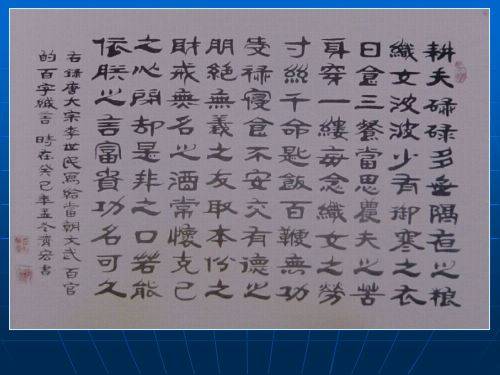 耕夫碌碌多無隔亱之粮
織女波波少有御寒之衣
日食三餐當思農夫之苦
身穿一縷每念織女之勞
寸絲千命匙飯百鞭無功
受祿寝食不安交有德之
朋絕無義之友取本份之
財戒無名之酒常懷克己
之心閉却是非之口若能
依朕之言富貴功名可久
右錄唐大宗李世民寫給當朝文武百官
的百字緘言 時在癸巳年孟冬齊宏書